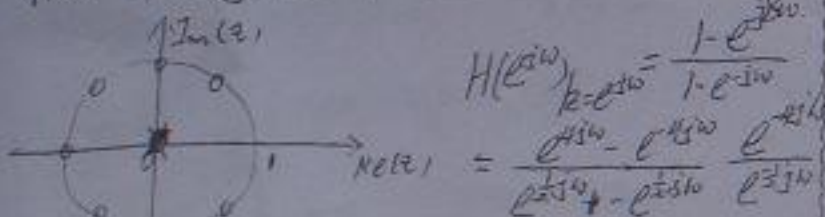 Im(z)
Re(z)
1
H(e^{jω})|_{z=e^{jω}} = \frac{1-e^{-j8ω}}{1-e^{-jω}}
= \frac{e^{4jω} - e^{-4jω}}{e^{\frac{1}{2}jω} - e^{-\frac{1}{2}jω}} \frac{e^{-4jω}}{e^{-\frac{1}{2}jω}}